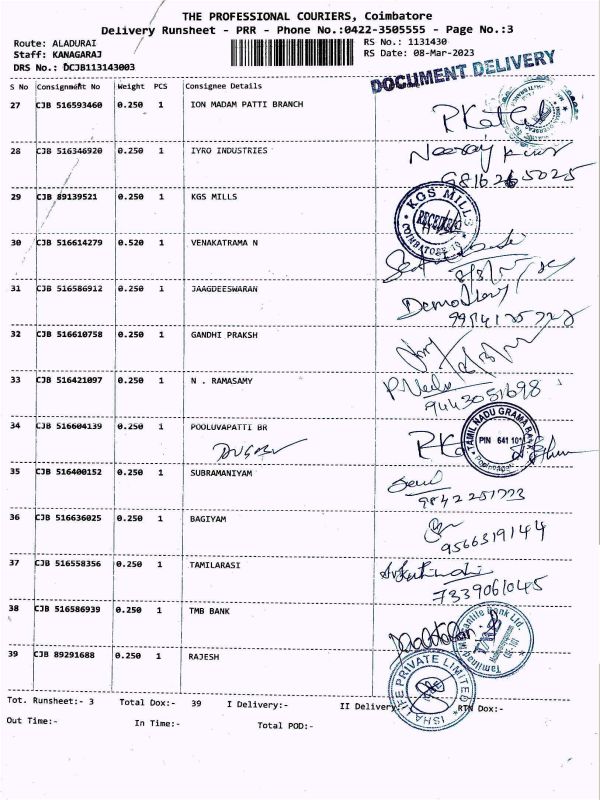 THE PROFESSIONAL COURIERS, Coimbatore
Delivery Runsheet - PRR - Phone No.:0422-3505555 - Page No.:3
Route: ALADURAI
RS No.: 1131430
Staff: KANAGARAJ
RS Date: 08-Mar-2023
DRS No.: DCJB113143003
DOCUMENT DELIVERY
S No Consignment No Weight PCS Consignee Details
27 CJB 516593460 0.250 1 ION MADAM PATTI BRANCH
28 CJB 516346920 0.250 1 IYRO INDUSTRIES
Neeraj Kumar
9816265025
29 CJB 89139521 0.250 1 KGS MILLS
KGS MILLS
RECEIVED
COIMBATORE-19
30 CJB 516614279 0.520 1 VENAKATRAMA N
31 CJB 516586912 0.250 1 JAAGDEESWARAN
32 CJB 516610758 0.250 1 GANDHI PRAKSH
33 CJB 516421097 0.250 1 N . RAMASAMY
9443051698
34 CJB 516604139 0.250 1 POOLUVAPATTI BR
TAMIL NADU GRAMA BANK
PIN 641 101
35 CJB 516400152 0.250 1 SUBRAMANIYAM
9842251723
36 CJB 516636025 0.250 1 BAGIYAM
9566319144
37 CJB 516558356 0.250 1 TAMILARASI
7339061045
38 CJB 516586939 0.250 1 TMB BANK
Tamilnad Mercantile Bank Ltd.
39 CJB 89291688 0.250 1 RAJESH
ISHA LIFE PRIVATE LIMITED
Tot. Runsheet:- 3 Total Dox:- 39 I Delivery:- II Delivery:- RTN Dox:-
Out Time:- In Time:- Total POD:-